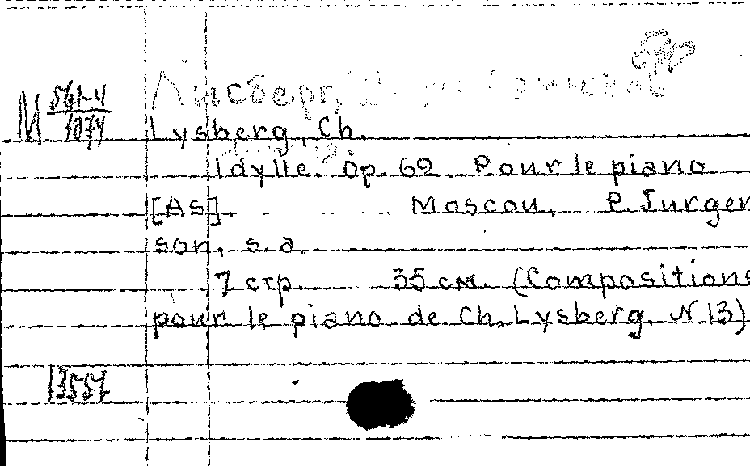 М 561-4
1074
Лисберг,
Lysberg, Ch.
Idylle. Op. 62. Pour le piano
[As]. Moscou, P. Jurgen
son, s. a.
7 стр. 35 см. (Compositions
pour le piano de Ch. Lysberg. N 13)